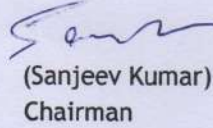 (Sanjeev Kumar)
Chairman